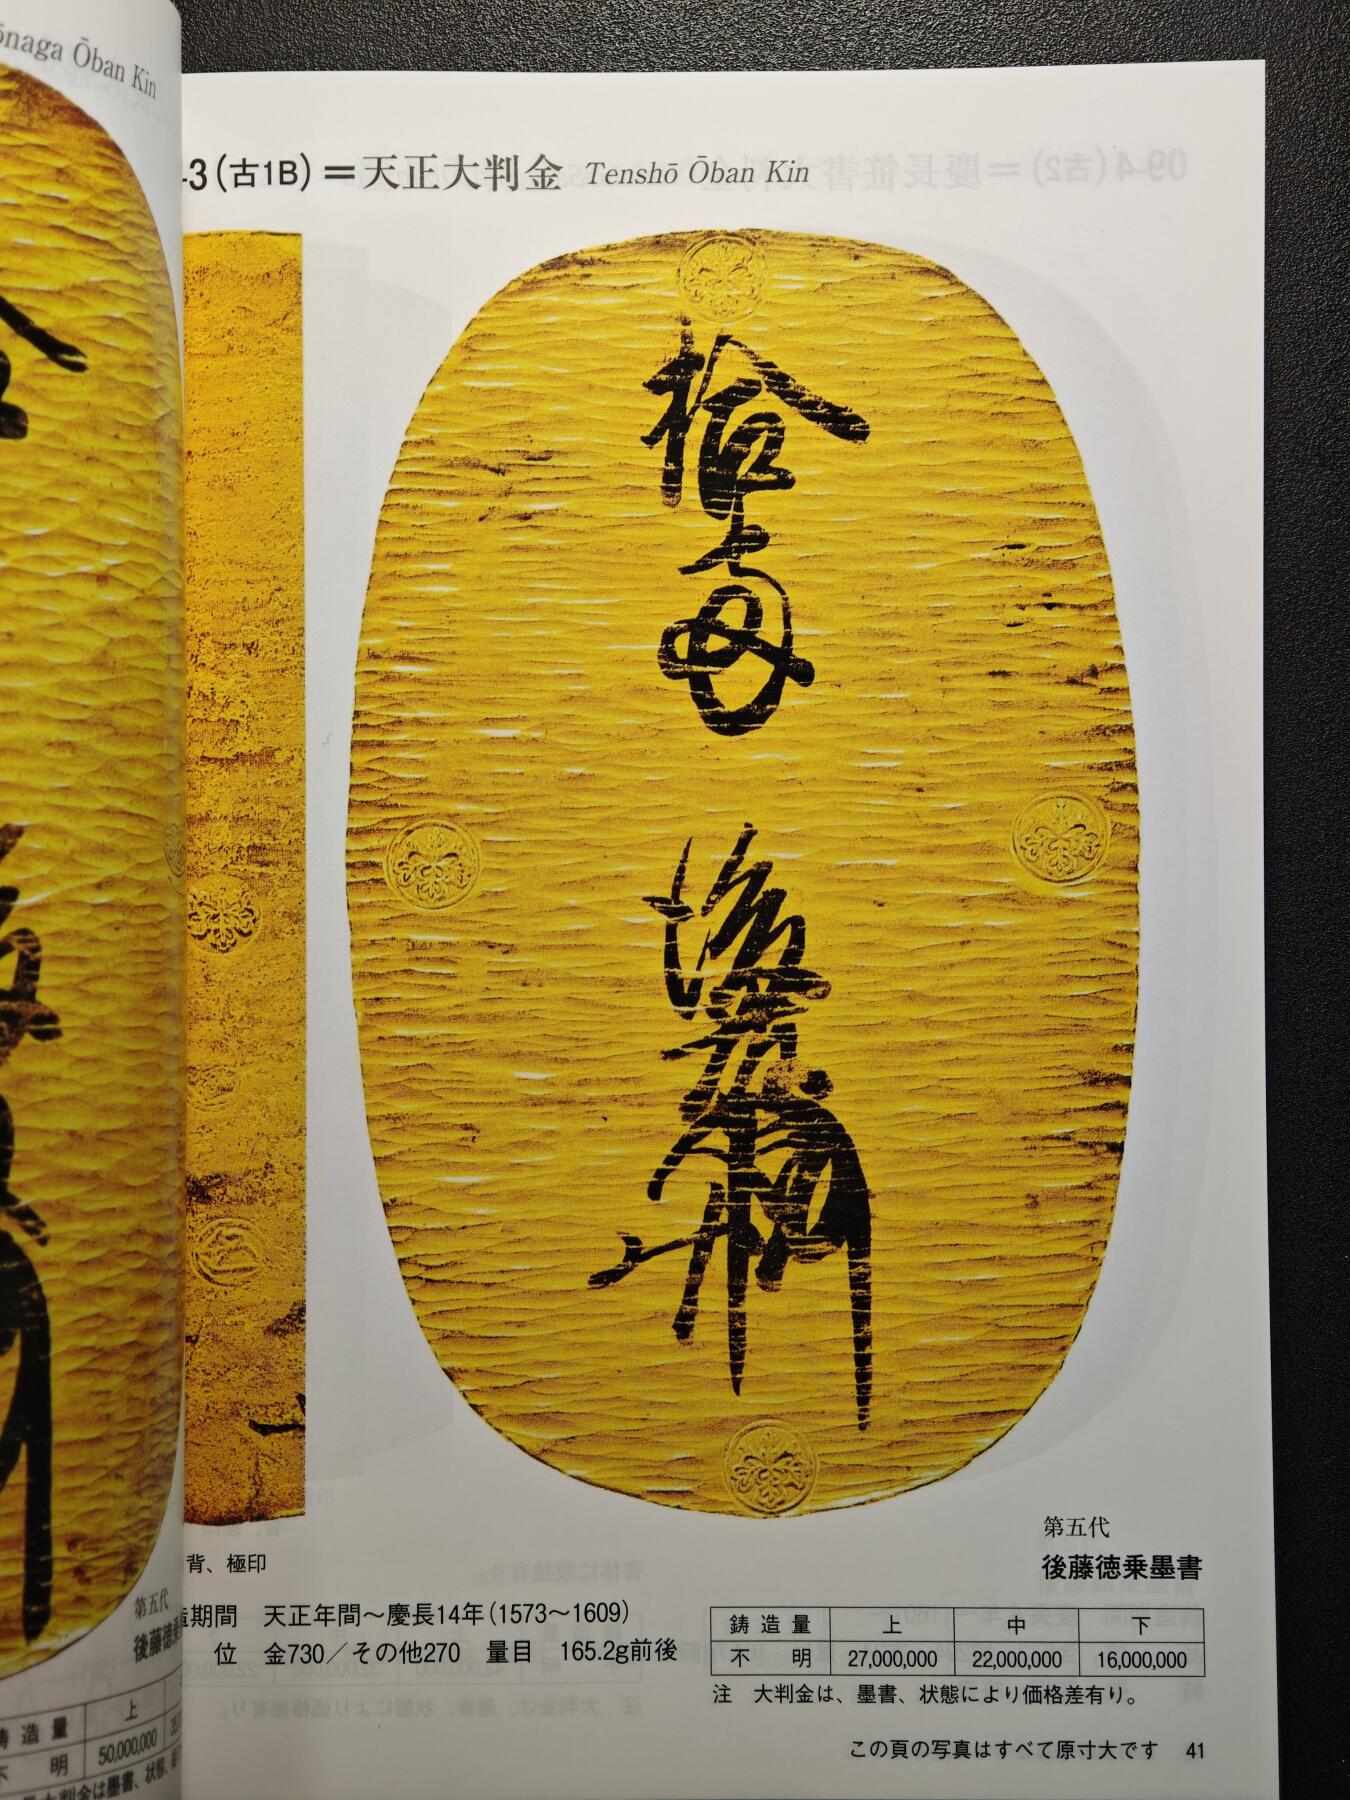 ōnaga Ōban Kin
第五代
鋳造量 上
不明 50,000,000
-3(古1B)=天正大判金 Tenshō Ōban Kin
拾両 後藤
背、極印
造期間 天正年間~慶長14年(1573~1609)
位 金730/その他270 量目 165.2g前後
第五代
後藤徳乗墨書
鋳造量 上 中 下
不明 27,000,000 22,000,000 16,000,000
注 大判金は、墨書、状態により価格差有り。
この頁の写真はすべて原寸大です 41